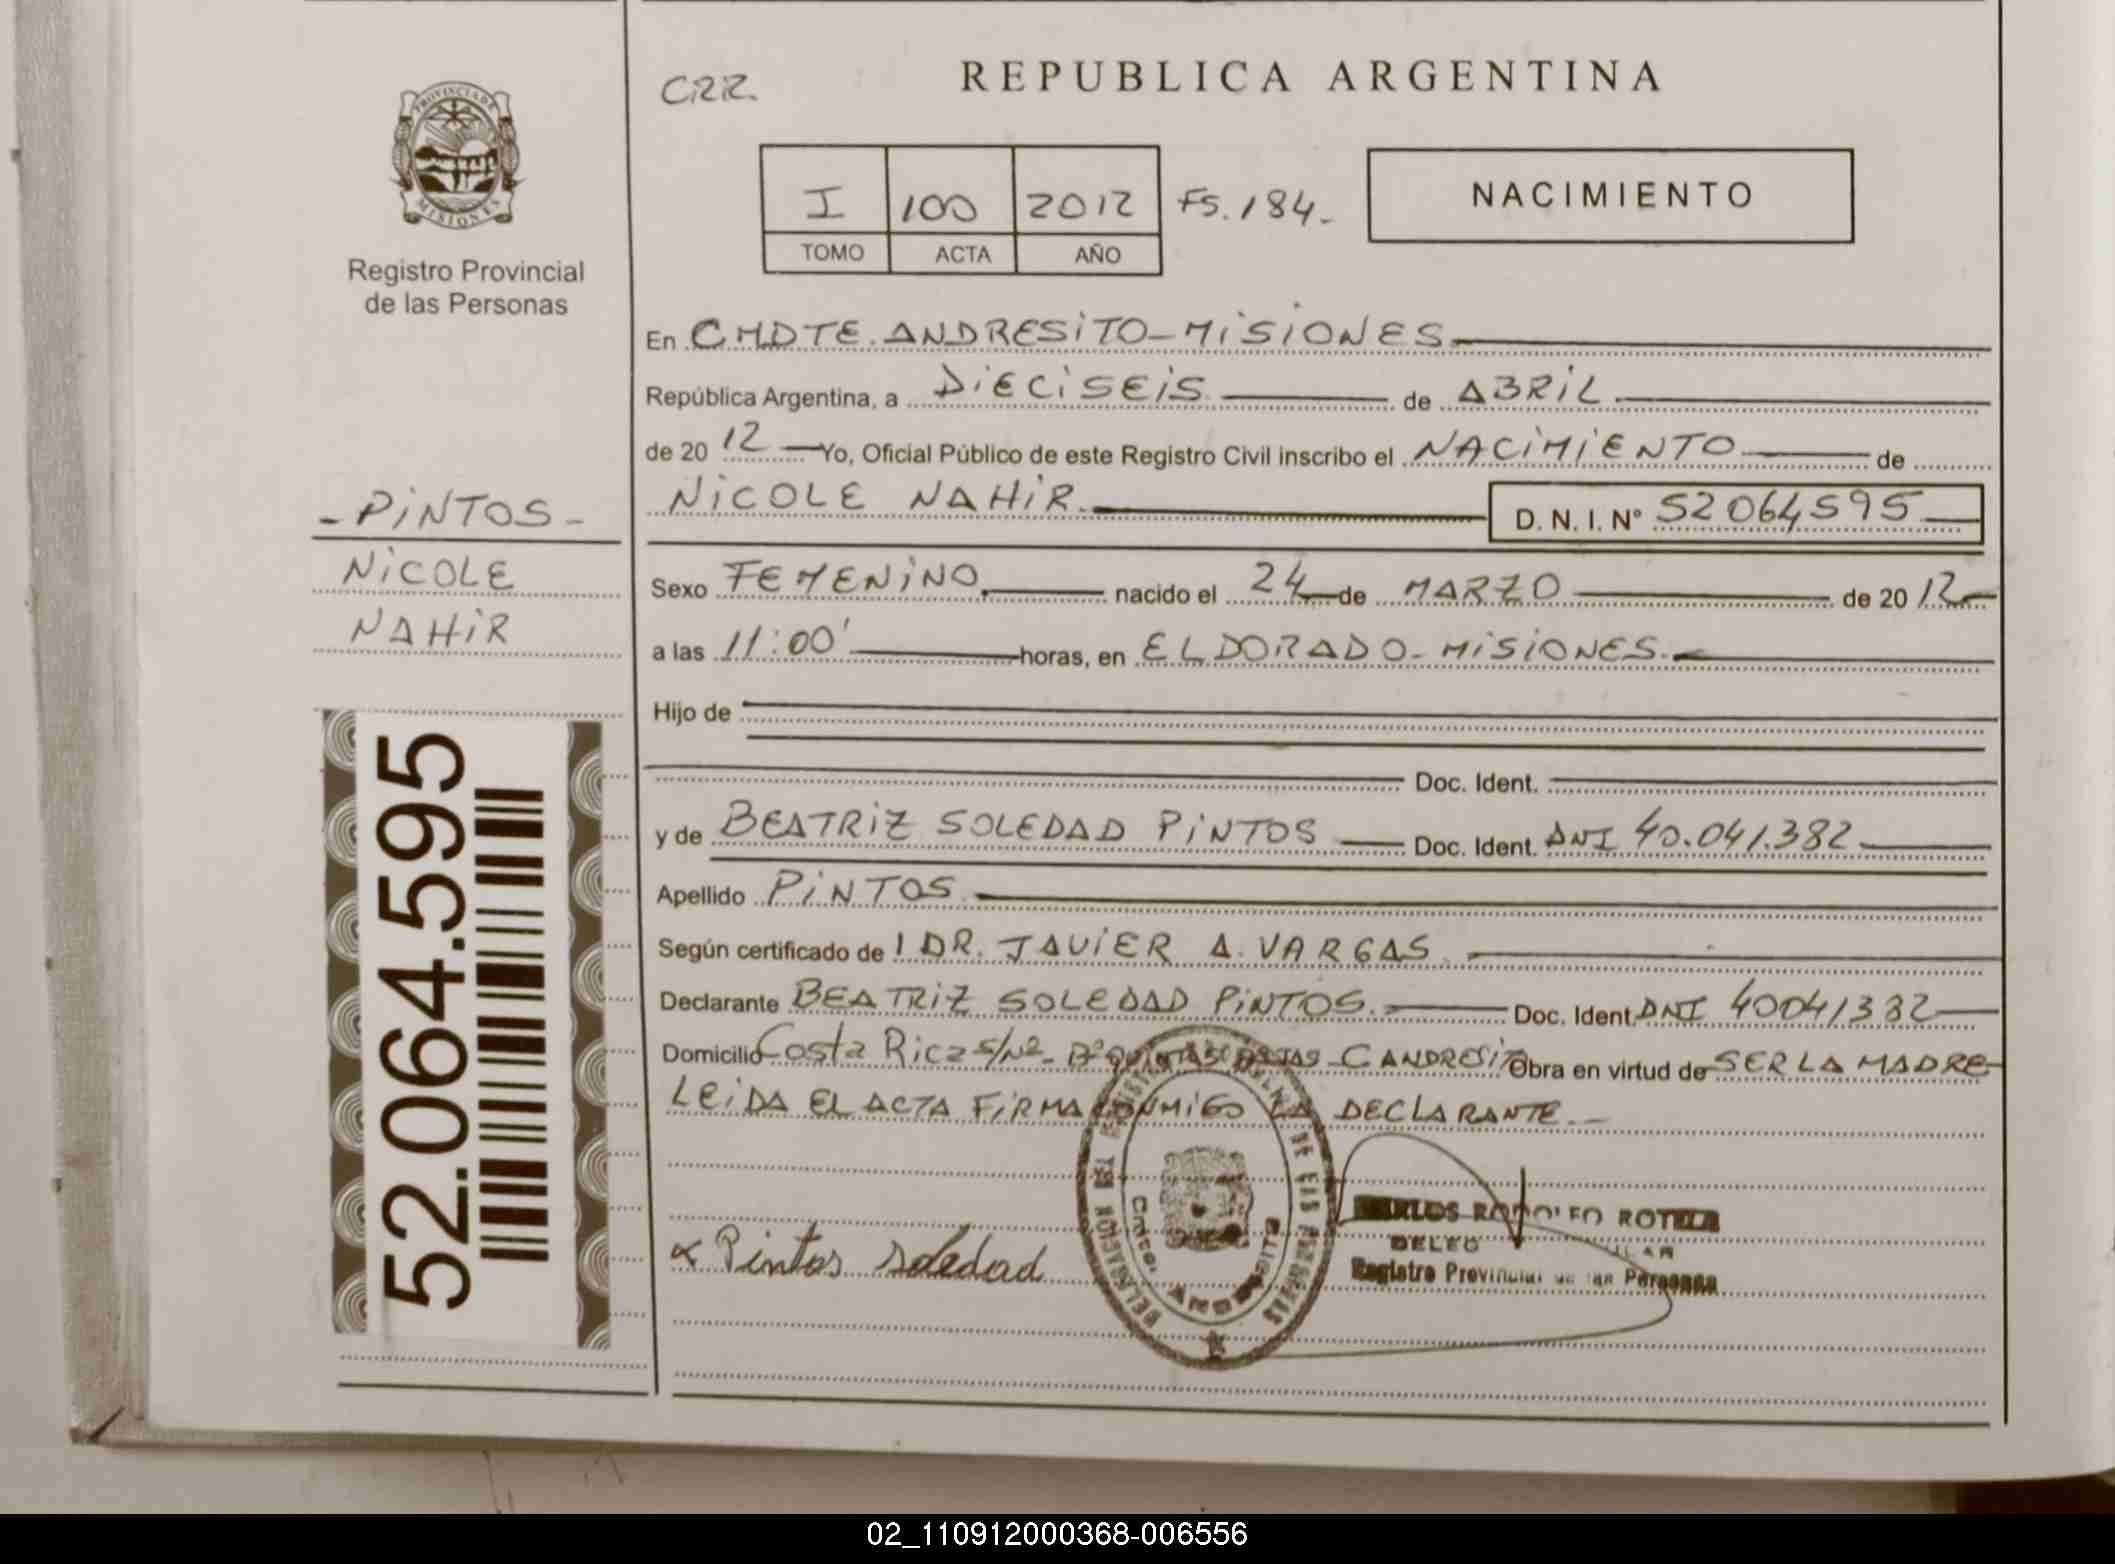 PROVINCIA DE
MISIONES
Registro Provincial
de las Personas
- PINTOS -
NICOLE
NAHIR
52.064.595
CRR.
REPUBLICA ARGENTINA
I 100 2012 FS. 184.-
TOMO ACTA AÑO
NACIMIENTO
En CMDTE. ANDRESITO - MISIONES
República Argentina, a DIECISEIS de ABRIL
de 20 12 Yo, Oficial Público de este Registro Civil inscribo el NACIMIENTO de
NICOLE NAHIR D. N. I. N° 52064595
Sexo FEMENINO nacido el 24 de MARZO de 20 12
a las 11:00' horas, en ELDORADO - MISIONES.
Hijo de
Doc. Ident.
y de BEATRIZ SOLEDAD PINTOS Doc. Ident. DNI 40.041.382
Apellido PINTOS
Según certificado de 1 DR. JAVIER A. VARGAS
Declarante BEATRIZ SOLEDAD PINTOS. Doc. Ident. DNI 40041382
Domicilio Costa Rica S/Nº - Bº QUINTAS - C ANDRESITO Obra en virtud de SER LA MADRE
LEIDA EL ACTA FIRMA CONMIGO LA DECLARANTE. -
x Pintos Soledad
DELEGACION DE LAS PERSONAS
Andresito
CARLOS RODOLFO ROTELA
Registro Provincial de las Personas
02_110912000368-006556